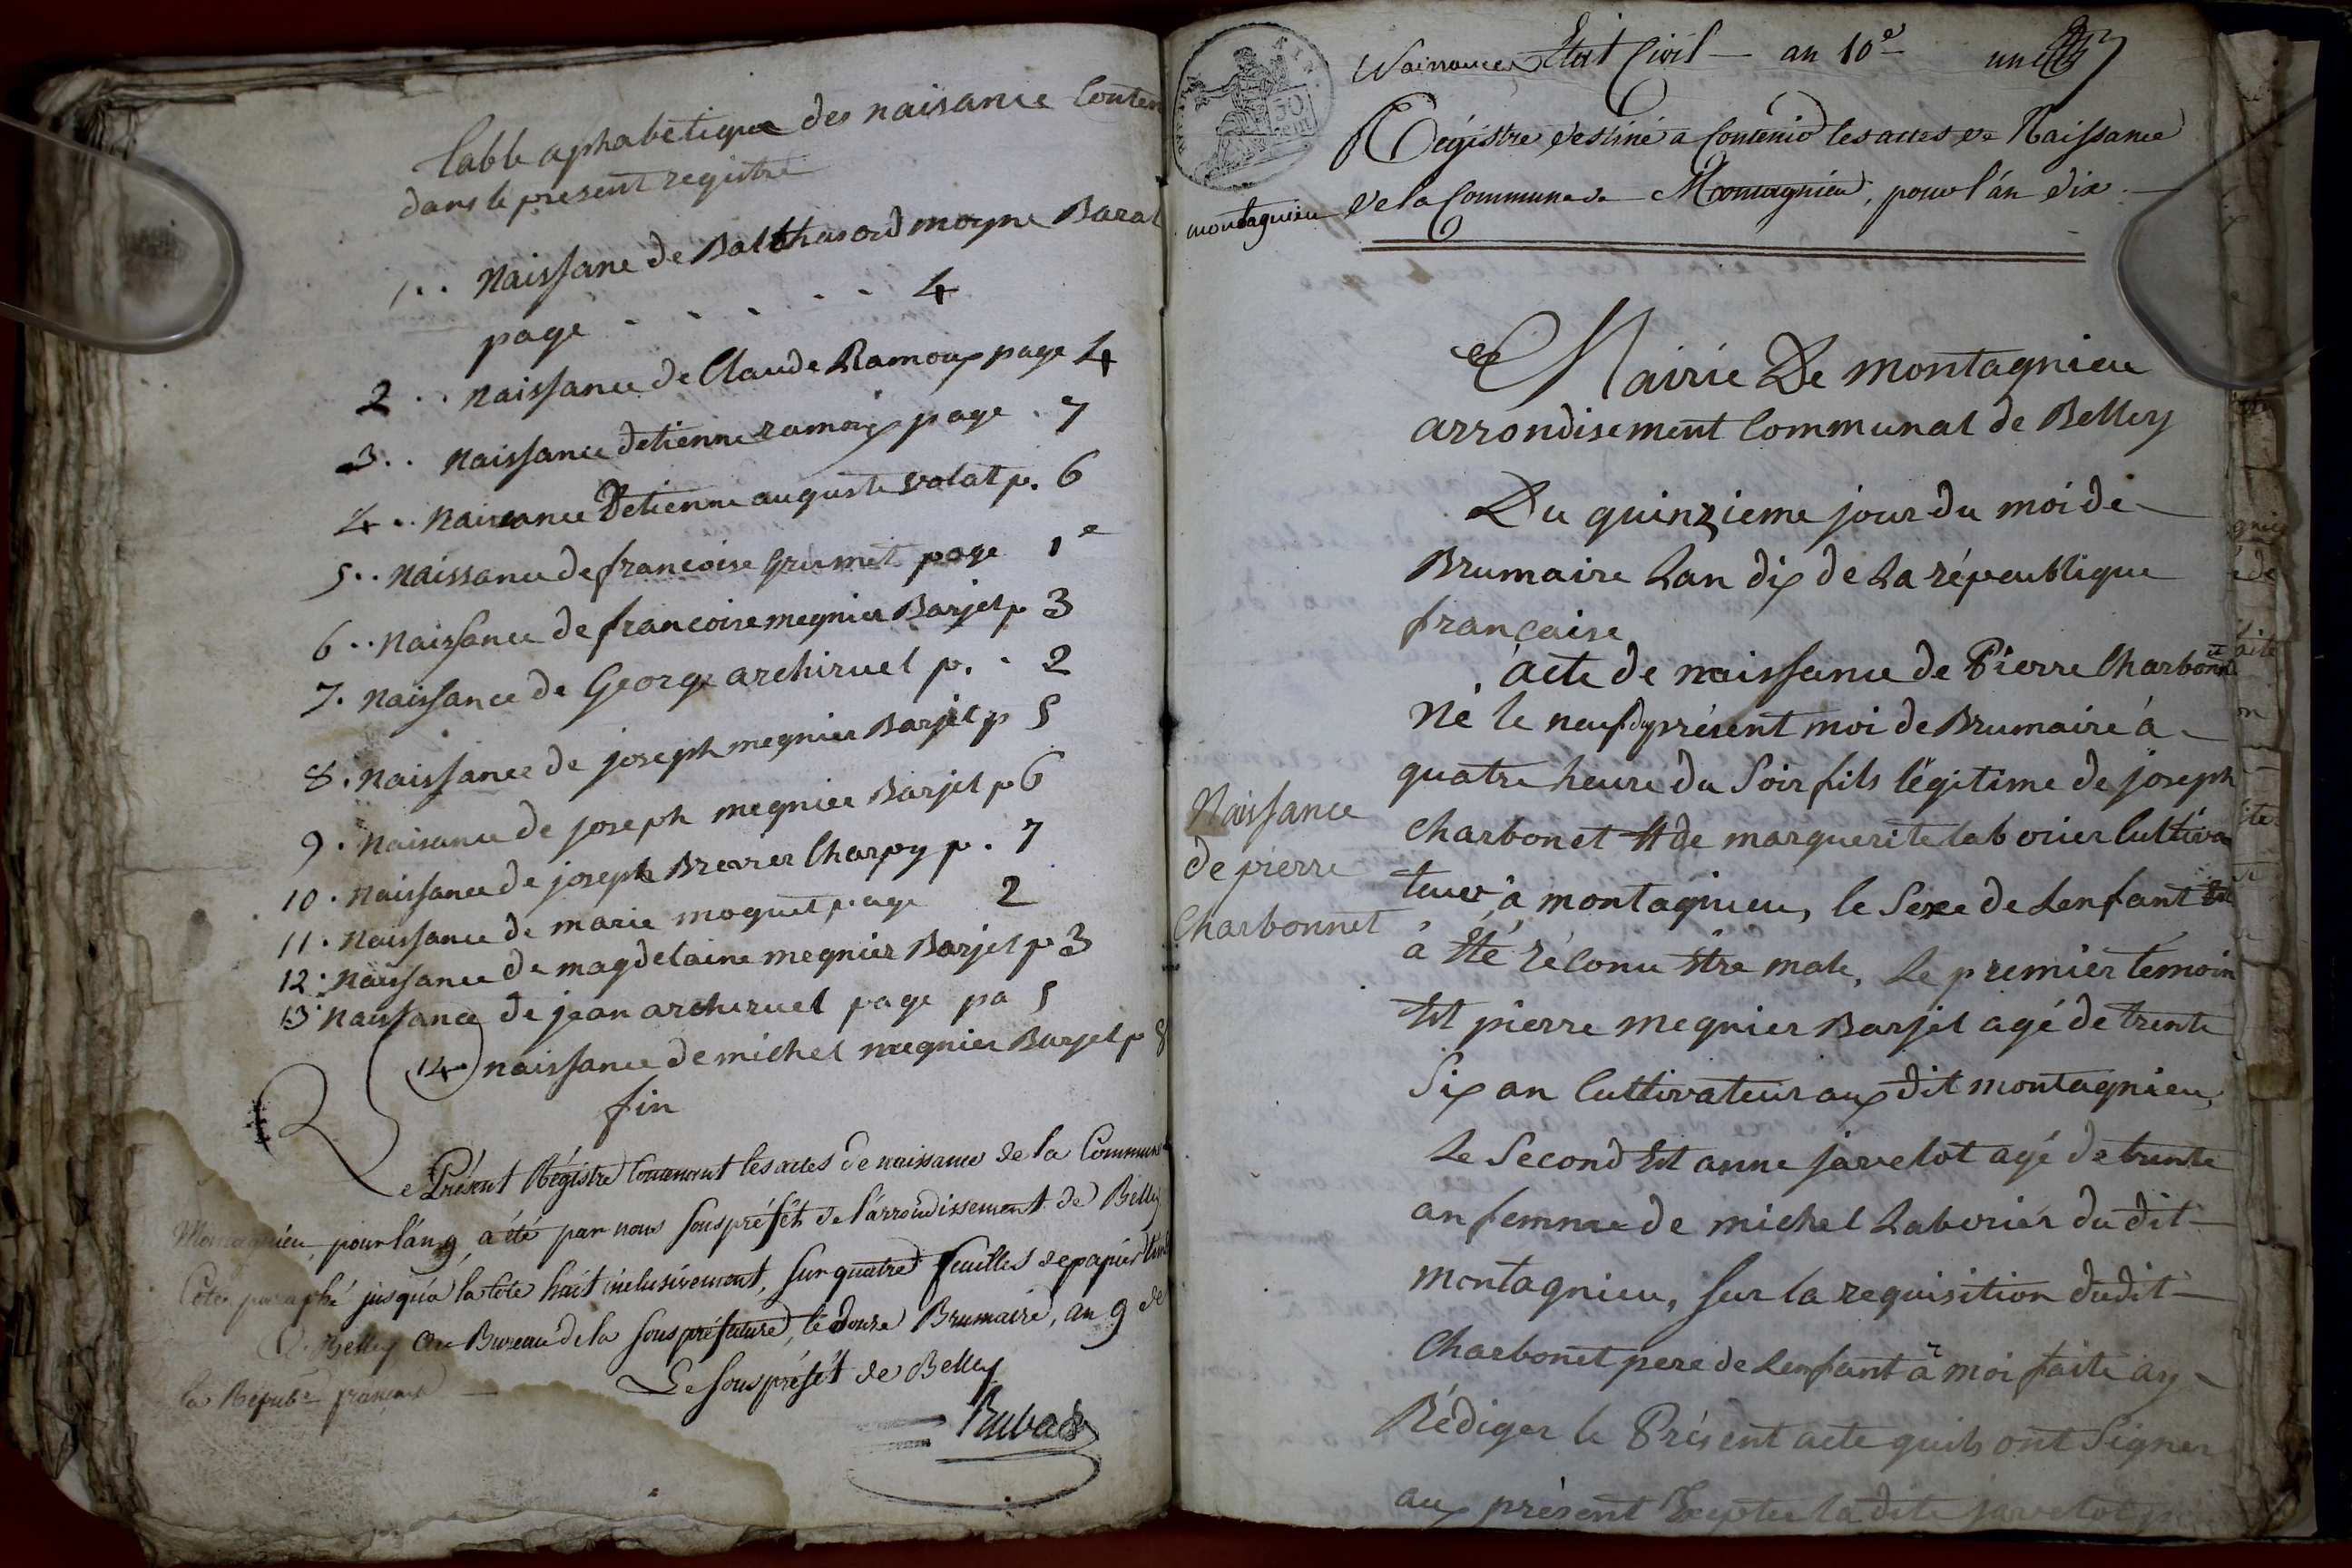 Table aphabetique des naisance Conten
dans le present registre
1.. Naissane de Balthasard moyne Barat
page . . . . . . 4
2.. Naissance de Claude Ramoux page 4
3.. Naissance detienne ramoix page . 7
4.. Naissance Detienne auguste volat p. 6
5.. Naissance de francoise Grumet page 1e
6.. Naissance de francoise megnier Barjet p 3
7. Naissance de George archiruel p. . 2
8. Naissance de joseph megnier Barjet p 5
9. Naisance de joseph megnier Barjet p 6
10. Naissance de joseph Charpy p. 7
11. Naissance de marie moquet page 2
12. Naissance de magdelaine megnier Barjet p 3
13 Naissance de jean archiruel page pa 5
14 naissance de michel megnier Barjet p 8
fin
Le Présent Régistre Contenant les actes de naissance de la Commune
Montagnieu, pour l'an 9, a été par nous sous préfét de l'arrondissement de Belley
Coté, paraphé jusqu'a la Cote huit inclusivement, sur quatre feuilles de papier
a Belley au Bureau de la sous préfecture, le douze Brumaire, an 9 de
la Répube française
Le sous préfét de Belley
50
Naissances Etat Civil - an 10e un
Régistre destiné a Contenir les actes de Naissance
montagnieu de la Commune de Montagnieu, pour l'án dix.
Mairie De montagnieu
arrondisement Communal de Belley
Du quinzieme jour du moi de
Brumaire Lan dix de La républigue
française
acte de naissance de Pierre Charbonet
Né le neuf du présent moi de Brumaire à
quatre heure du Soir fils légitime de joseph
Charbonet de marguerite laborier Cultiva
teur à montagnieu, le Sexe de Lenfant
Naissance
de pierre
Charbonnet
à Eté réConu Etre male, Le premier temoin
Est pierre megnier Barjet agé de trente
Six an Cultivateur aux dit montagnieu,
Le Second Est anne javelot agé de trente
an femme de michel Laborier du dit
montagnieu, Sur la requisition dudit
Charbonet pere de Lenfant à moi faite ay
Rédiger le Présent acte quils ont Signer
aux présent Exepter la dite javelot